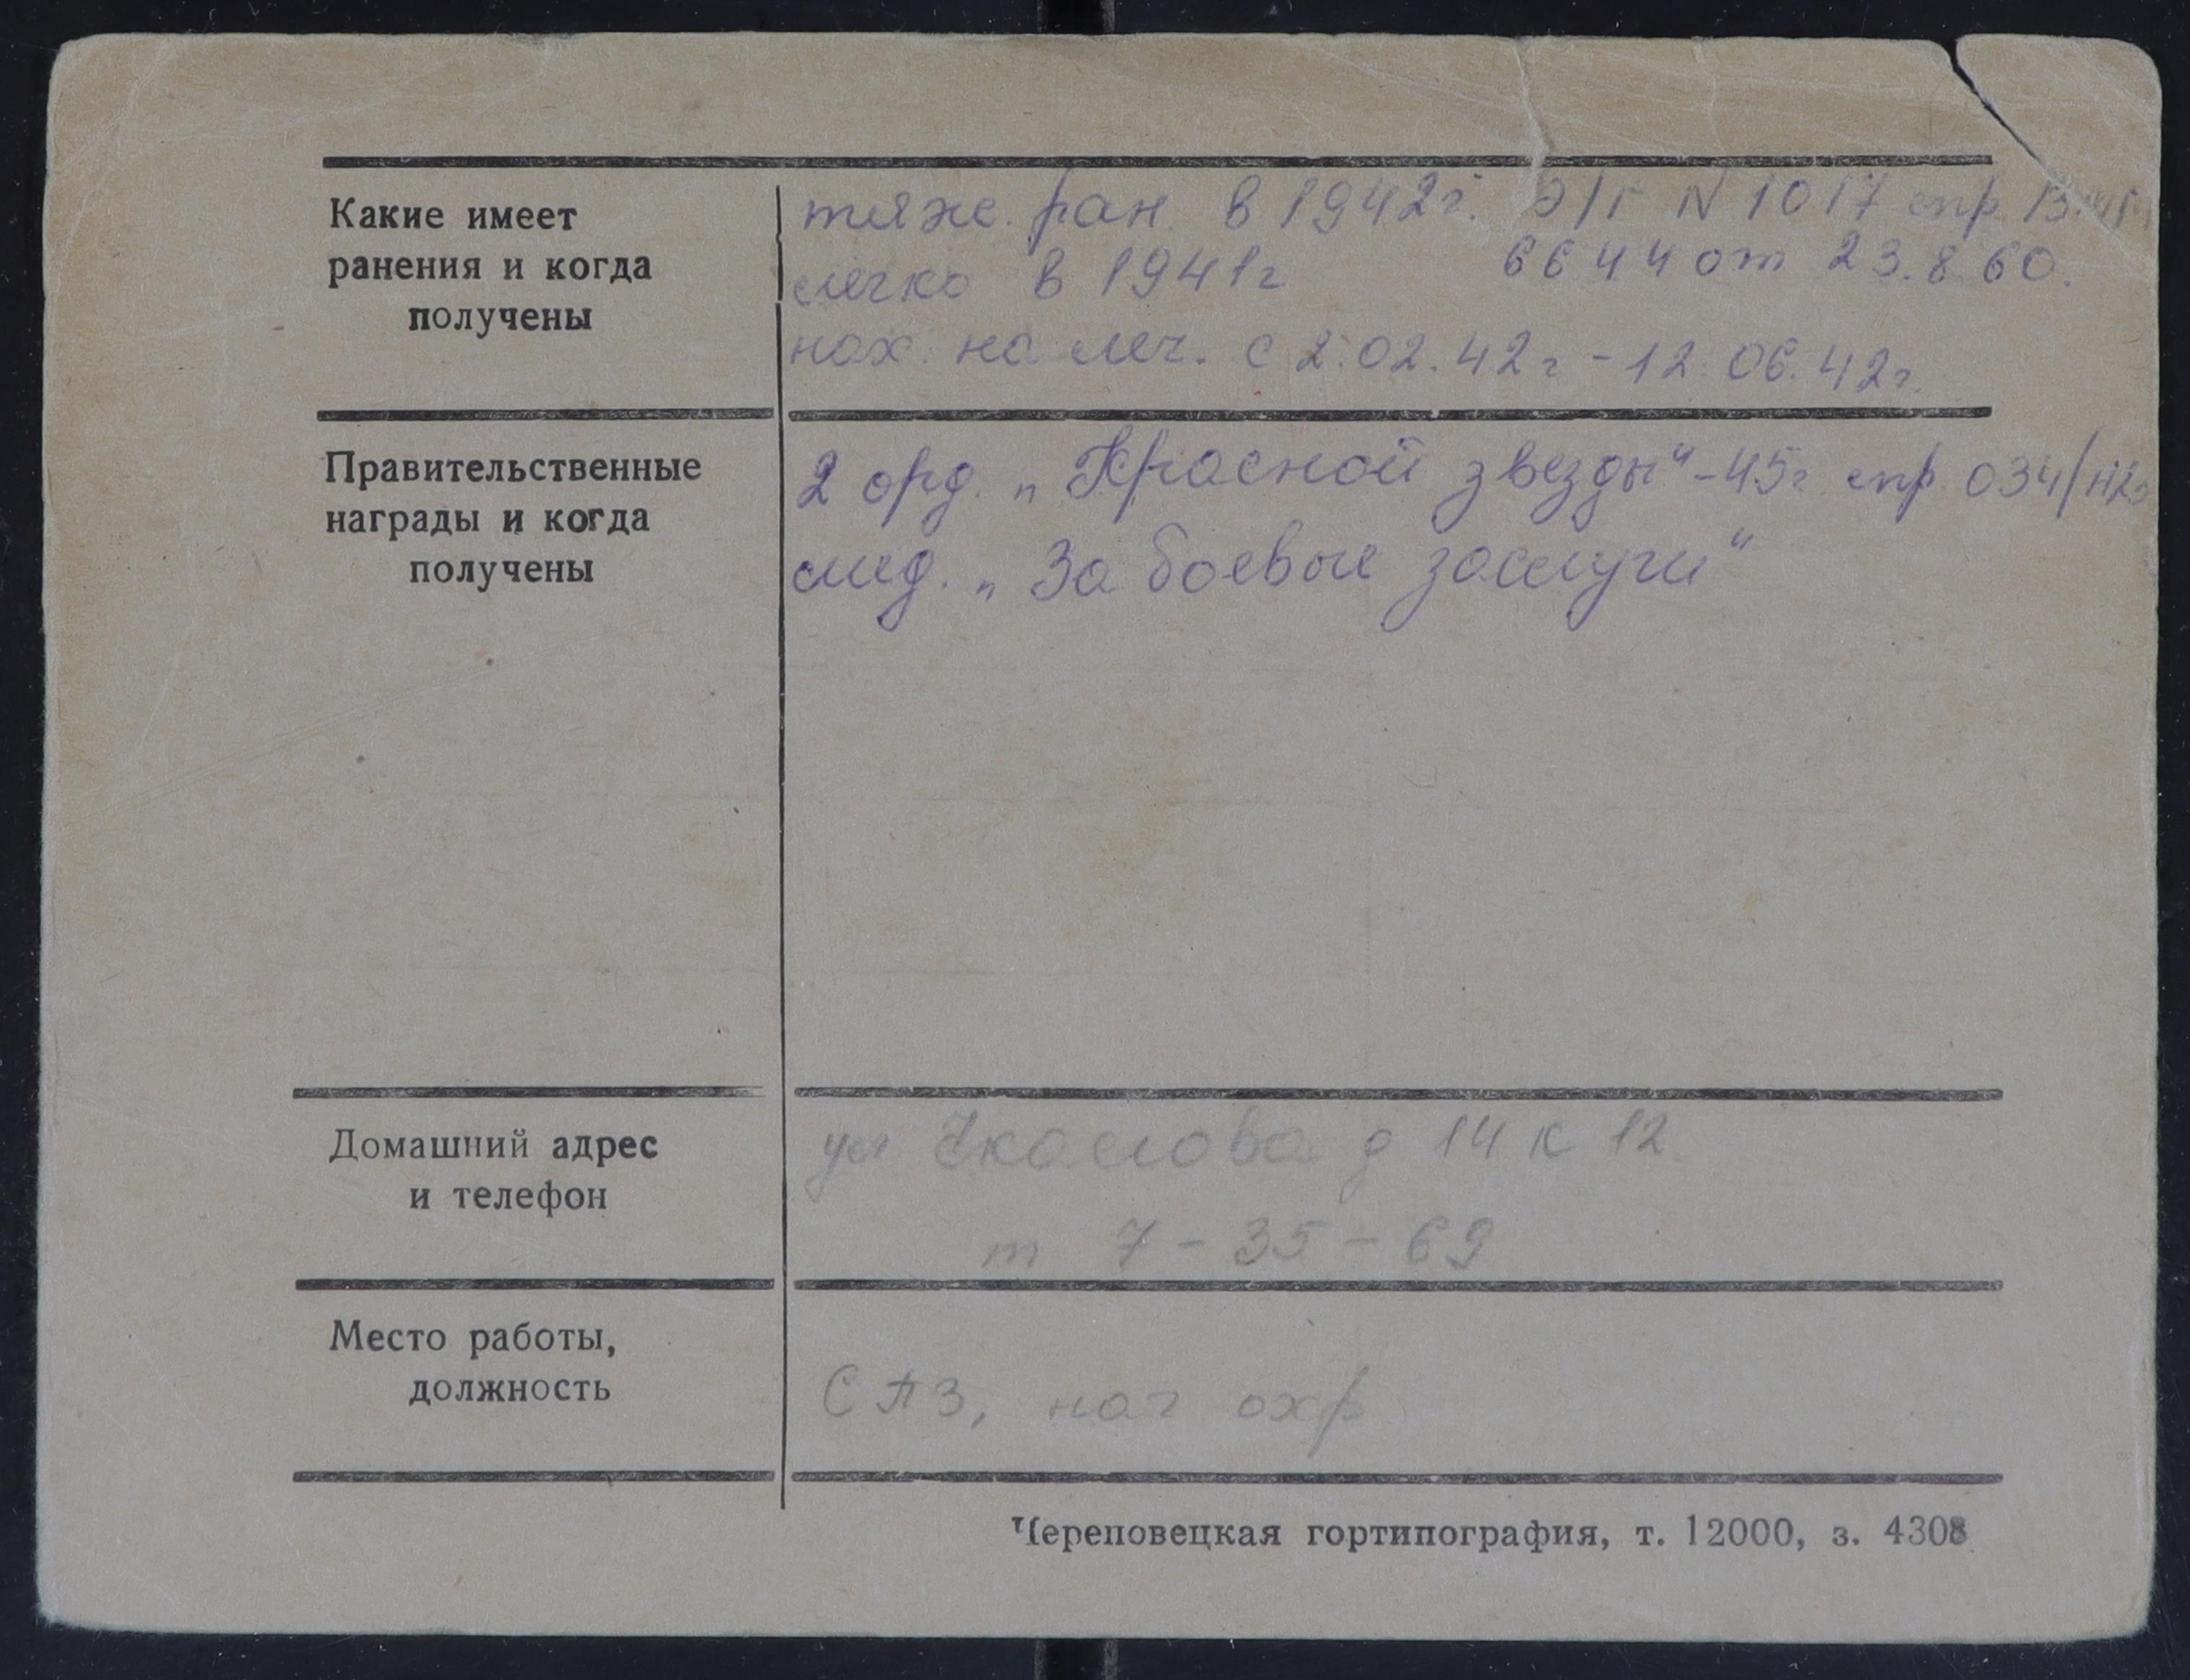 Какие имеет
ранения и когда
получены
тяже. ран. в 1942г. Э/Г N 1017 спр.
легко в 1941г 6644 от 23.8.60.
нах. на леч. с 2.02.42г - 12.06.42г.
Правительственные
награды и когда
получены
2 орд. „Красной звезды" - 45г спр. 034/
мед. „За боевые заслуги"
Домашний адрес
и телефон
ул Чкалова д 14 к 12
т 7-35-69
Место работы,
должность
СПЗ, нач охр
Череповецкая гортипография, т. 12000, з. 4308